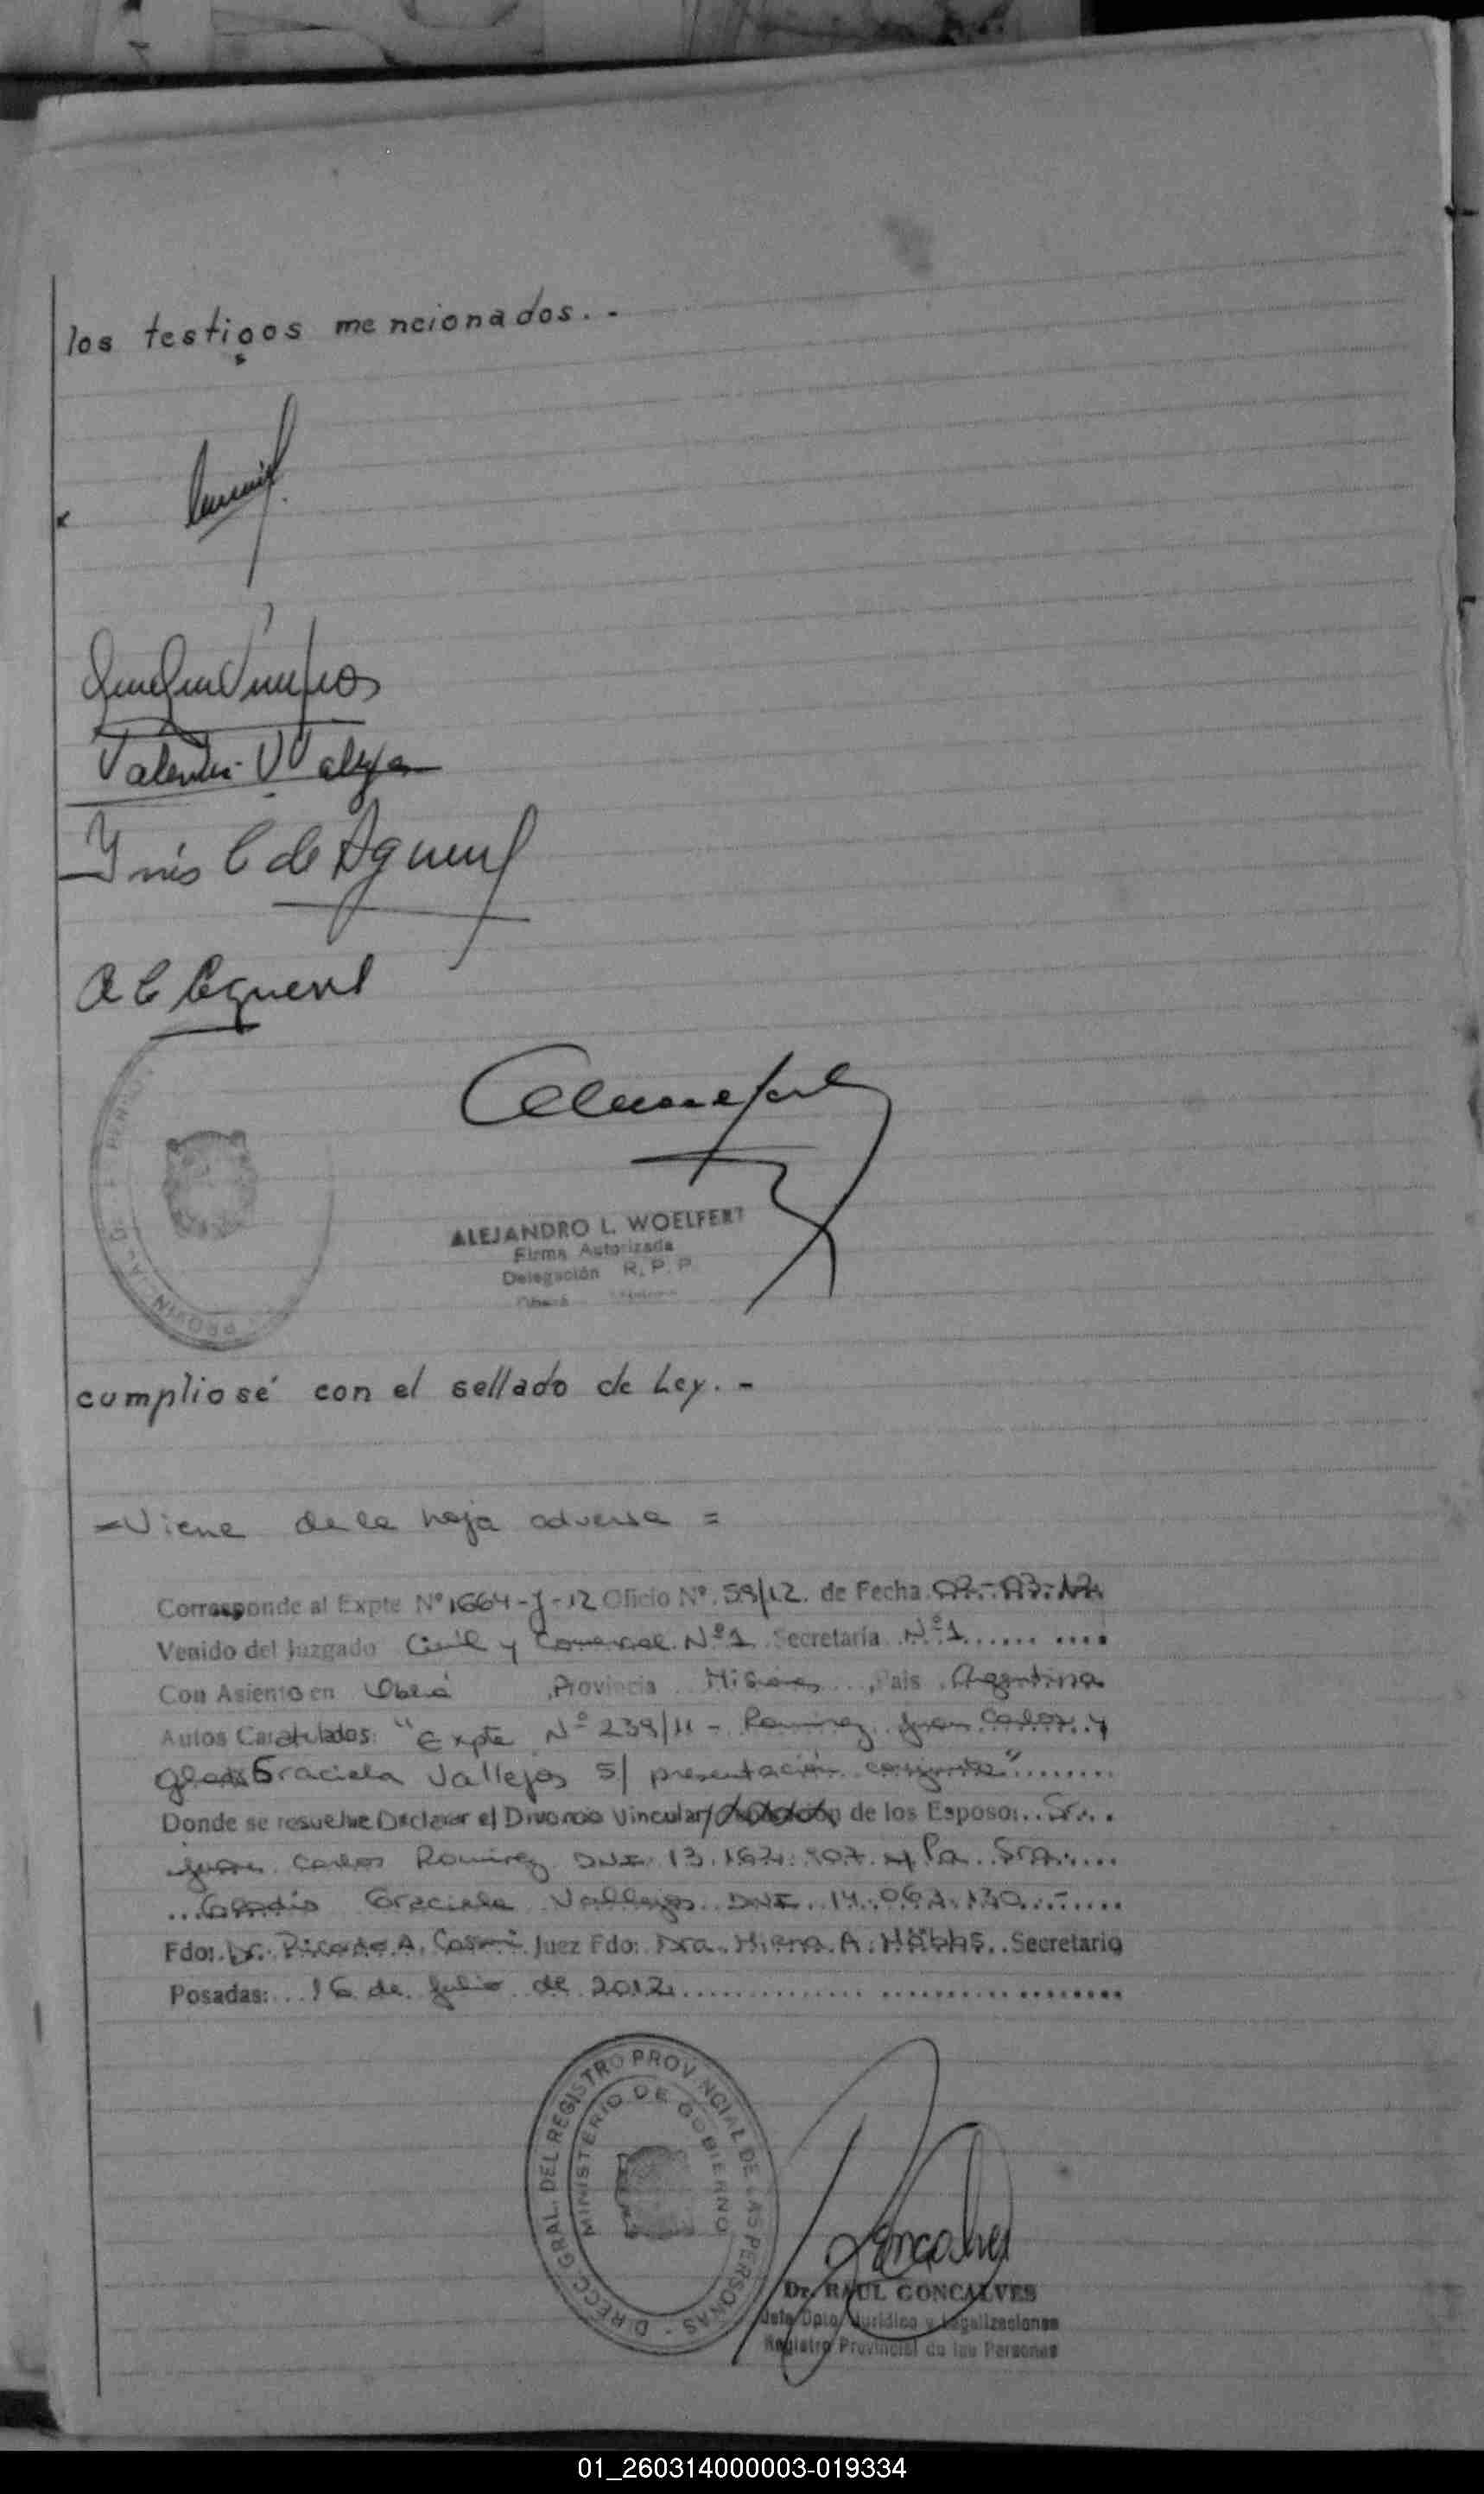 los testigos mencionados. -
Valentin V Vallejos
Ynés C de Aguerul
ALEJANDRO L. WOELFERT
Firma Autorizada
Delegación R. P. P
Oberá
PROVIN
cumpliosé con el sellado de Ley. -
= Viene de la hoja adversa =
Corresponde al Expte Nº 1664-J-12 Oficio Nº. 59/12. de Fecha
Venido del Juzgado Civil y Comercial Nº 1 Secretaría Nº 1
Con Asiento en Oberá Provincia Misiones, Pais Argentina
Autos Caratulados: "Expte Nº 239/11 - Ramirez Juan Carlos y
Gladis Graciela Vallejos S/ presentación conjunta"
Donde se resuelve Declarar el Divorcio Vincular/ de los Esposos: Sr.
Juan Carlos Ramirez DNI 13. y la Sra.
Gladis Graciela Vallejos DNI 14.
Fdo: Dr. Ricardo A. Juez Fdo: Dra. A. Secretario
Posadas: 16 de Julio de 2012
DIRECC. GRAL. DEL REGISTRO PROVINCIAL DE LAS PERSONAS -
MINISTERIO DE GOBIERNO
Goncalves
Dr. RAUL GONCALVES
Jefe Dpto. Jurídico y Legalizaciones
Registro Provincial de las Personas
01_260314000003-019334